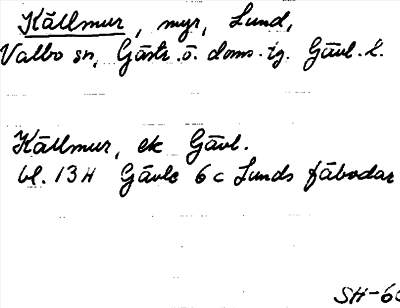 Källmur, myr, Lund,
Valbo sn, Gästr. ö. doms. tg. Gävl. l.
Källmur, ek Gävl.
bl. 13 H Gävle 6 c Lunds fäbodar
SH-60